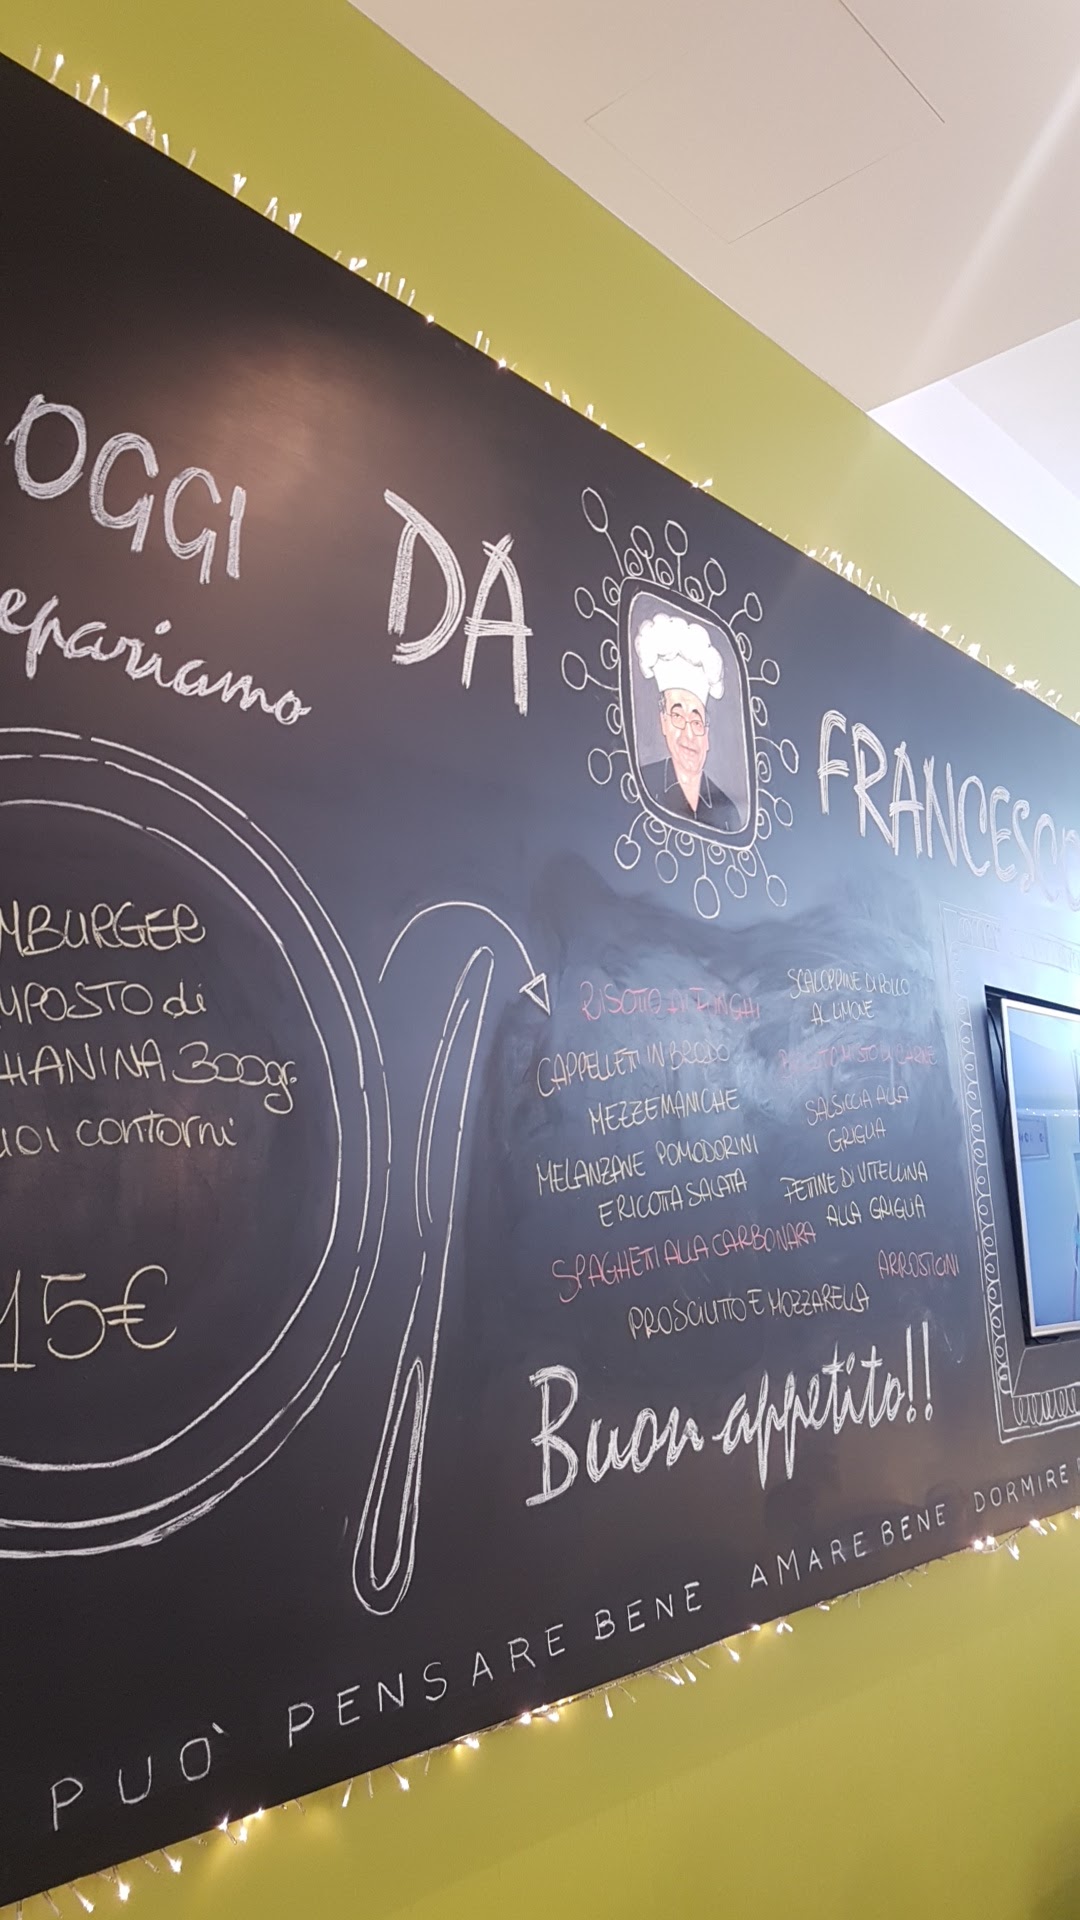 OGGI
DA
FRANCESCO
epariamo
MBURGER
MPOSTO di
HIANINA 300gr.
UOI contorni
15€
RISOTTO AI FUNGHI
CAPPELLETI IN BRODO
MEZZEMANICHE
MELANZANE POMODORINI
E RICOTTA SALATA
SPAGHETI ALLA CARBONARA
PROSCIUTTO E MOZZARELLA
SCALOPPINE DI POLLO
AL LIMONE
MISTO DI CARNE
SALSICCIA ALLA
GRIGLIA
FETTINE DI VITELLINA
ALLA GRIGLIA
ARROSTICINI
Buon appetito!!
PUÒ PENSARE BENE AMARE BENE DORMIRE